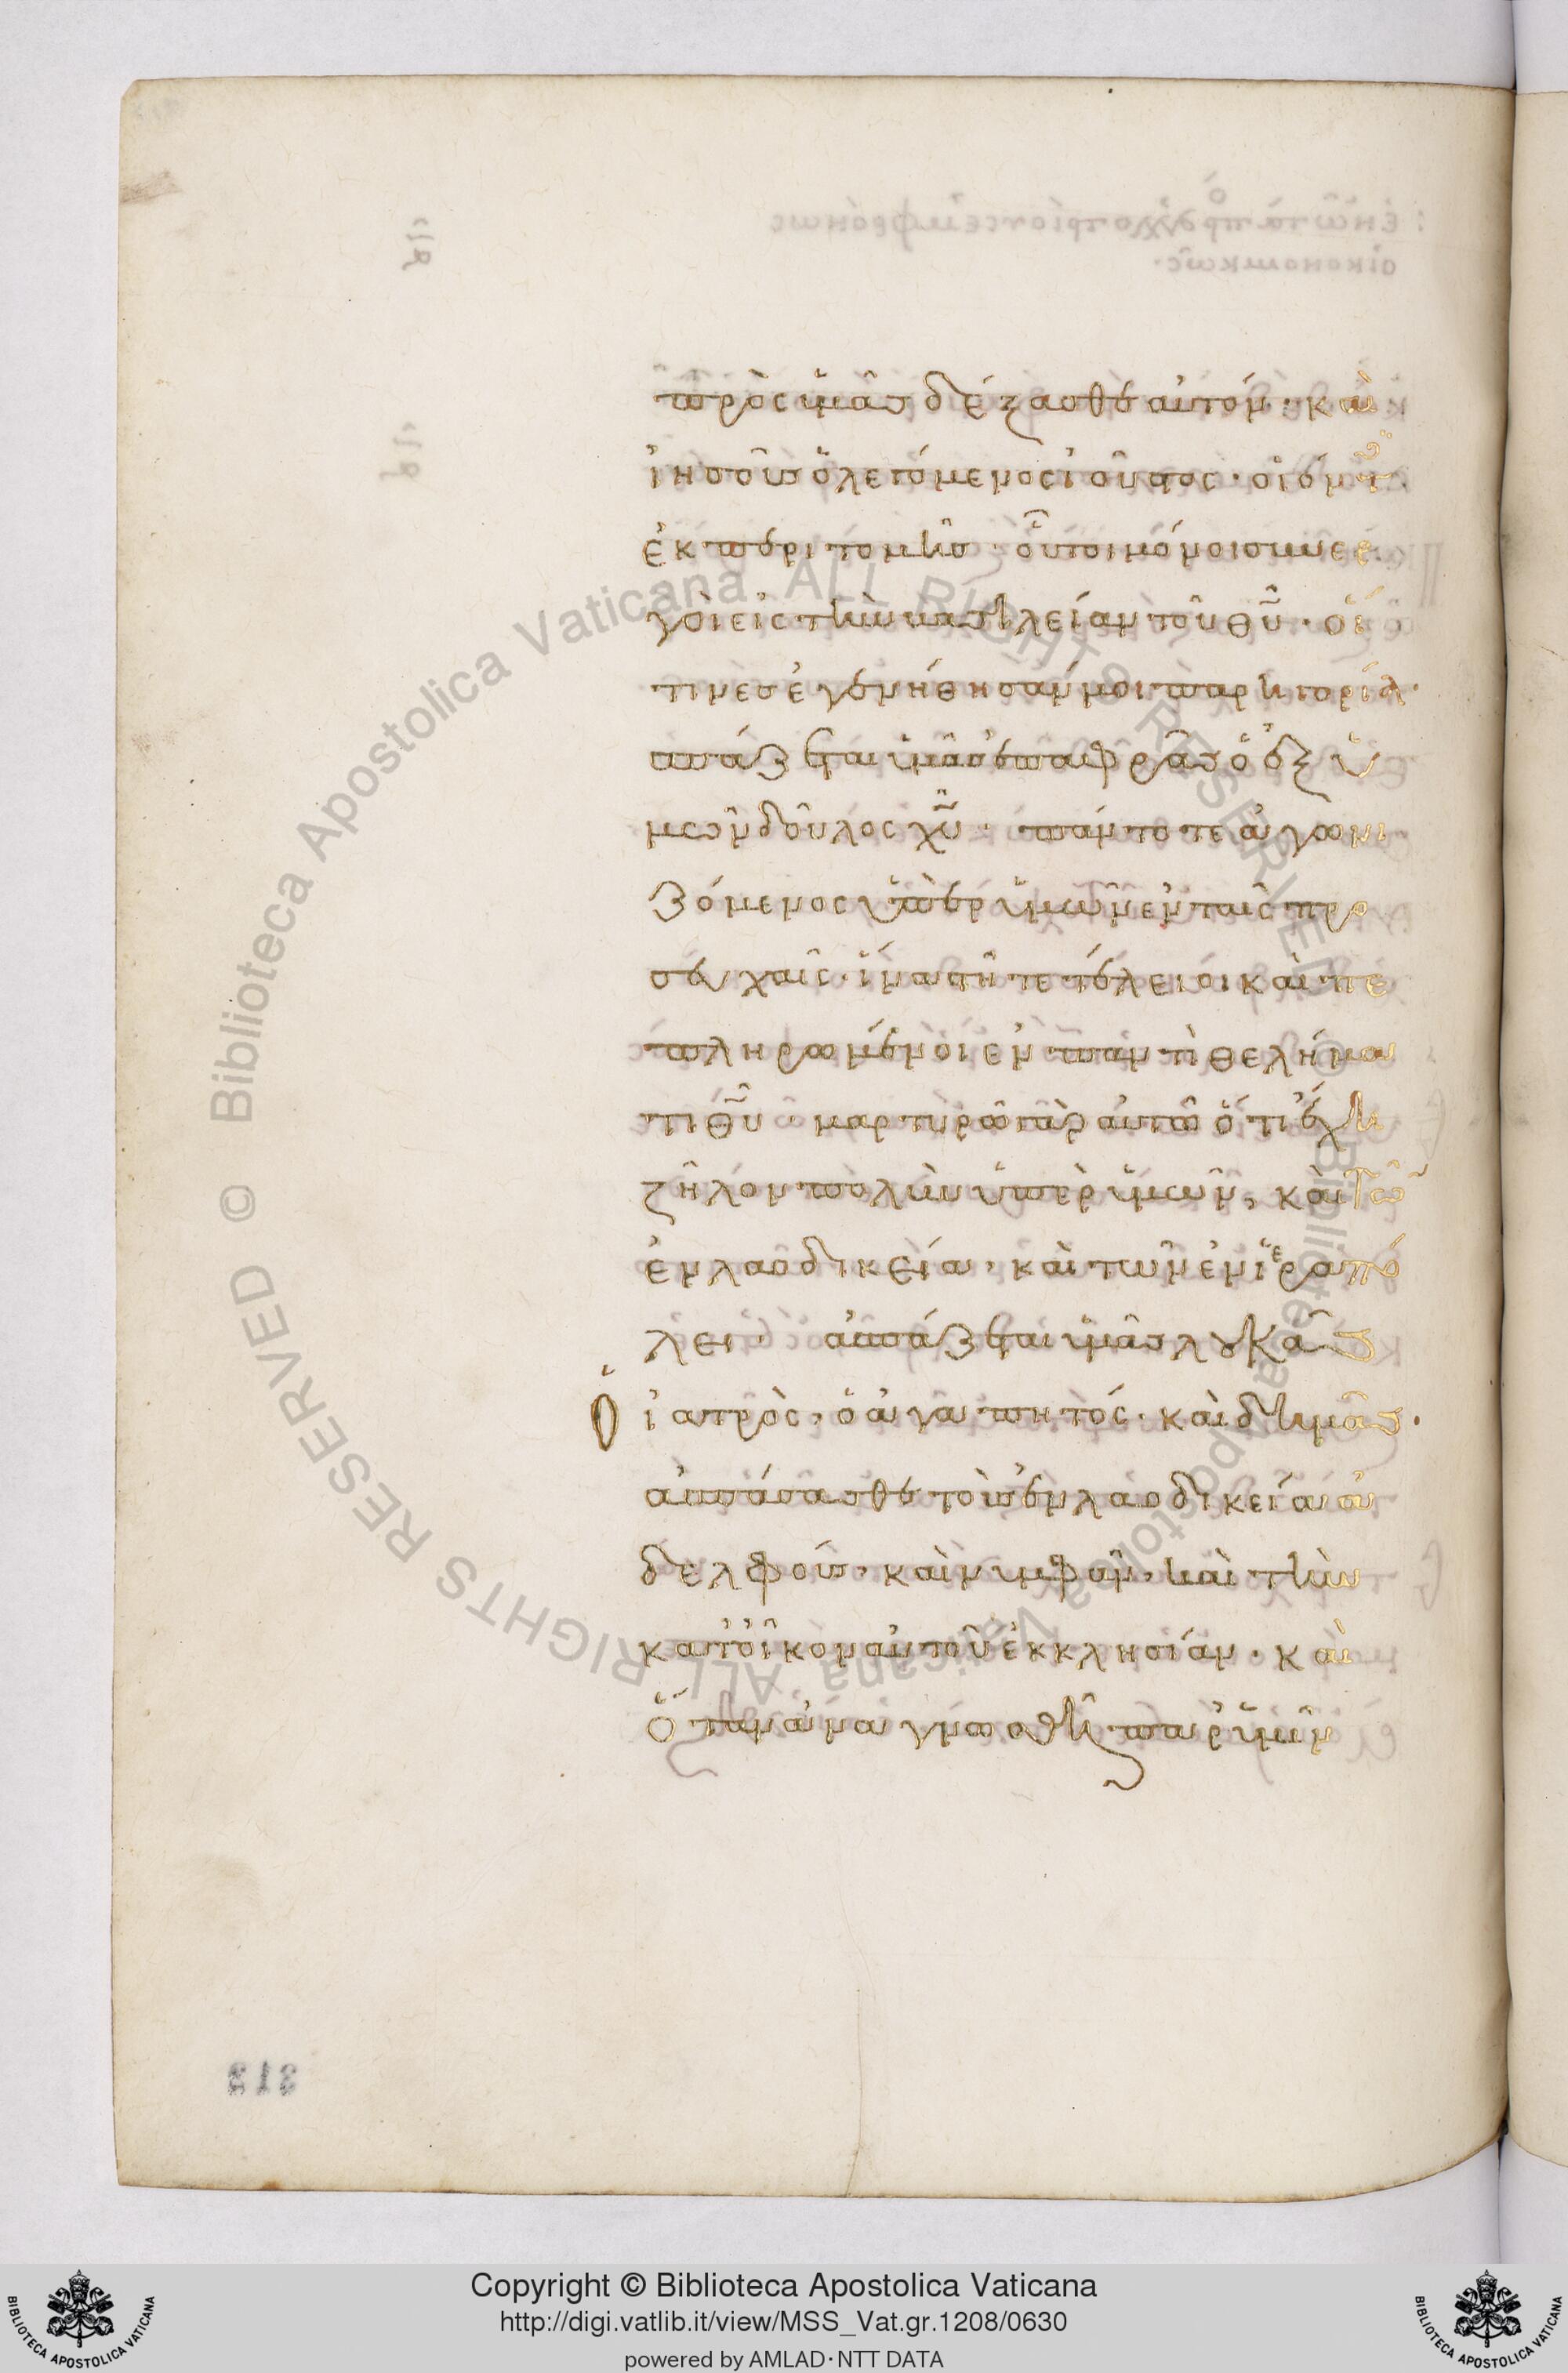 πρὸς ὑμᾶς δέξασθε αὐτόν· καὶ
ἰησοῦς ὁ λεγόμενος ἰοῦστος· οἱ ὄντ
ἐκ περιτομῆς· οὗτοι μόνοι συνερ
γοὶ εἰς τὴν βασιλείαν τοῦ θυ̅· οἵ
τινες ἐγενήθησάν μοι παρηγορία·
ἀσπάζεται ὑμᾶς ἐπαφρᾶς ὁ ἐξ ὑ
μῶν δοῦλος χυ̅· πάντοτε ἀγωνι
ζόμενος ὑπὲρ ὑμῶν ἐν ταῖς προ
σευχαῖς· ἵνα στῆτε τέλειοι καὶ πε
πληρωμένοι ἐν παντὶ θελήμα
τι θυ̅· μαρτυρῶ γὰρ αὐτῶ ὅτι ἔχει
ζῆλον πολὺν ὑπὲρ ὑμῶν, καὶ τῶ
ἐν λαοδικεία· καὶ τῶν ἐν ἱεραπό
λει· ἀσπάζεται ὑμᾶς λουκᾶς
ὁ ἰατρὸς· ὁ ἀγαπητός· καὶ δημᾶς·
ἀσπάσασθε τοὺς ἐν λαοδικεία ἀ
δελφούς· καὶ νυμφᾶν· καὶ τὴν
κατ' οἶκον αὐτοῦ ἐκκλησίαν· καὶ
ὅταν ἀναγνωσθῆ παρ' ὑμῖν
313
Copyright © Biblioteca Apostolica Vaticana
http://digi.vatlib.it/view/MSS_Vat.gr.1208/0630
powered by AMLAD·NTT DATA
BIBLIOTECA APOSTOLICA VATICANA
BIBLIOTECA APOSTOLICA VATICANA
© Biblioteca Apostolica Vaticana ALL RIGHTS RESERVED
© Biblioteca Apostolica Vaticana ALL RIGHTS RESERVED